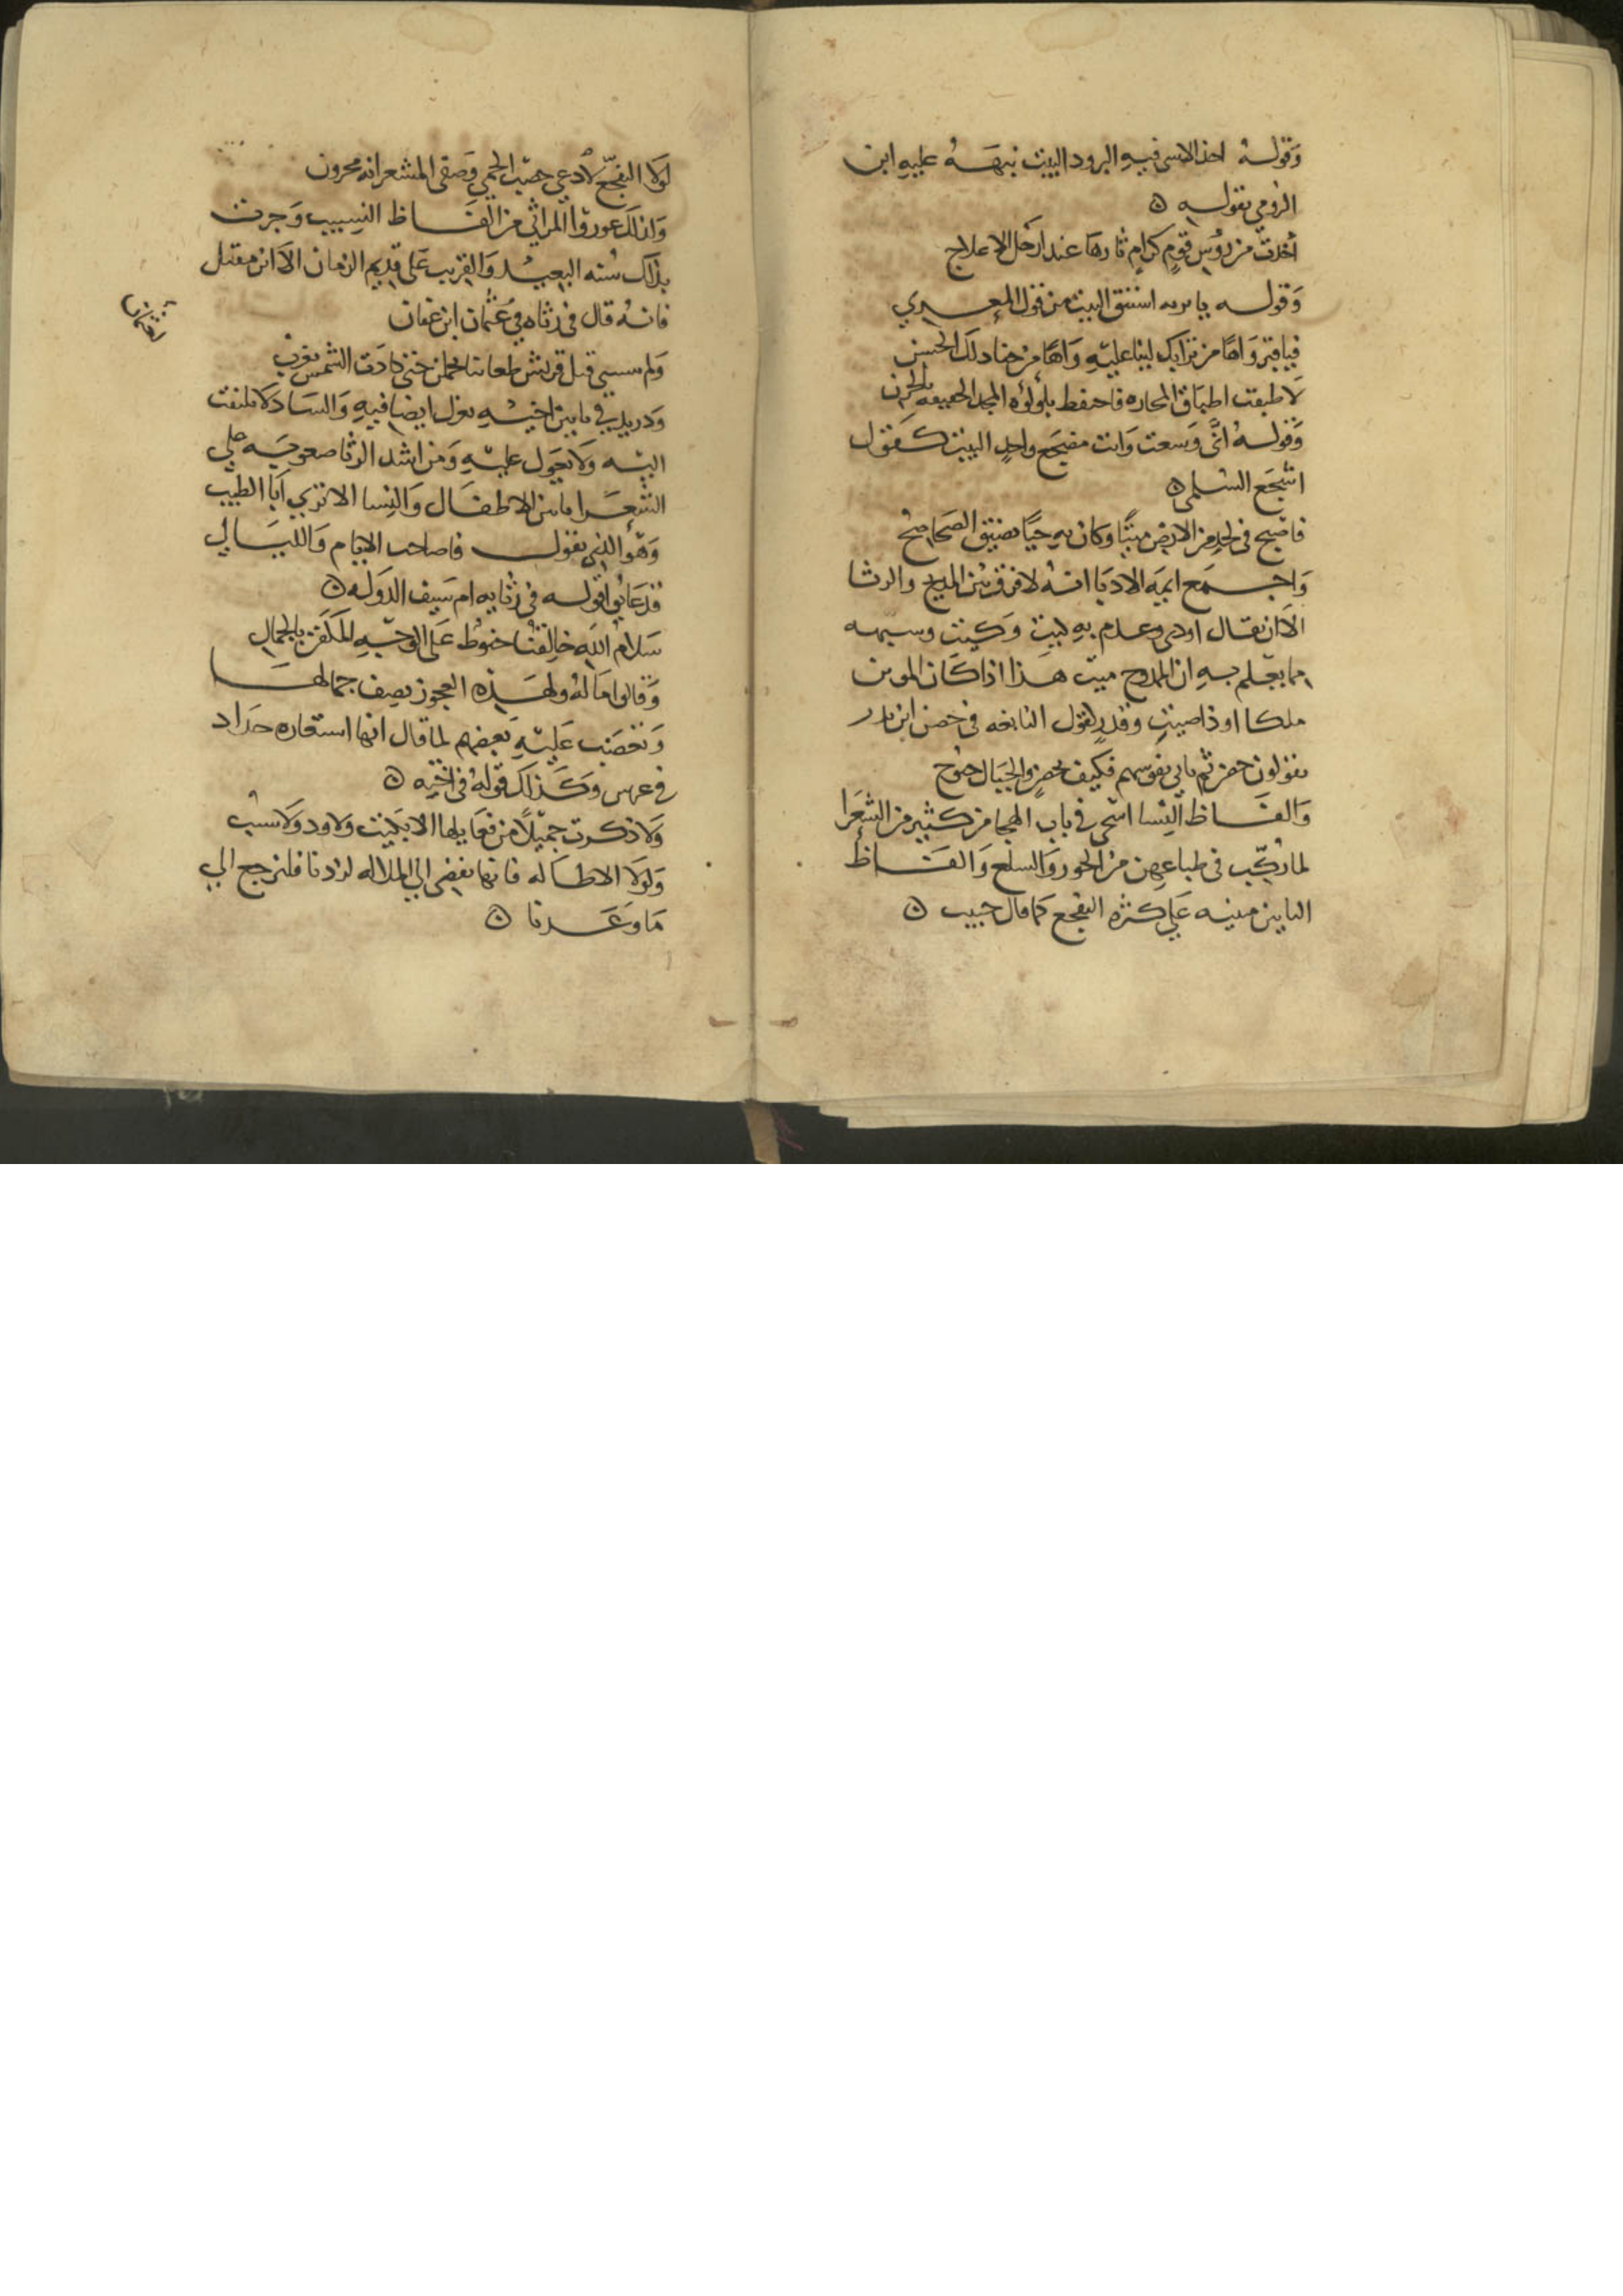 وَقولهُ اخذ الاسى فيهِ البرود البيت نبهَهُ عليهِ ابن
الرومي بقوله ۞
أخذت من رؤسِ قومٍ كرامٍ ثارهَا عند ارجُل الاعلاج
وَقوله يا تربه استنق البيت من قول المعري
فيا قبر وَاهًا من ترابك لينا عليهِ وَاهًا من جنادلك الخشن
لا طبقت اطباق المحاره فاحتفظ بلؤلؤه المجد الحقيقه بالخزن
وَقوله انَّى وَسعت وَانت مضجع واحدٍ البيت كقول
اشجَع السُلمى ۞
فاصبح في لحدٍ من الارض ميتًا وكان بهِ حيًا تضيق الصحاصح
وَاجمَع ايمه الادبَا انهُ لا فرق بين المديح والرثا
الا ان يقال اودى وعدم بهِ كيت وَكيت وشبهه
مما يعلم بهِ ان الممدوح ميت هَذا اذا كان الموبن
ملكا او ذا صيتٍ وقدرٍ كقول النابغه في حصن ابن بدر
يقولون حصن ثم تابي نفوسهم فكيف بحصنٍ والجبَال جنوح
وَالفَاظ النِسا اشجى في باب الهجا من كثير من الشعَرا
لما ركّب في طباعهن من الخور وَالهلع وَالفَاظ
التابين مبنيه عَلى كثره التفجع كما قال حبيب ۞
لوَلا التفجّع لادعي هضب الحمي وَصفى المشعر انه محزون
وَلذلك عورِوا المراثي من الفَاظ النسيب وَجرت
بذلك سُنه البعيد وَالقريب عَلى قديم الزمان الا ابن مقبل
فانهُ قال في رثاه في عُثمان ابن عفان
لعثمان
وَلم تنسني قتلى قريش ظعاينا تحملن حتى كادَت الشمس تغرب
وَدريد في مابين اخيهِ تغزل ايضا فيهِ وَالشاذ لا يلتفت
اليه وَلا يعَول عليهِ وَمن اشد الرثا صعوبَه على
الشعَرا تابين الاطفَال وَالنِسا الا ترى ابَا الطيب
وَهو الذي يقول فاصاحب الايام وَالليَالي
قد عَابوا قوله في رثايه ام سَيف الدوَله ۞
سَلامُ اللَه خالقنا حنوط عَلى الوجهِ المكفن بالجمال
وَقالوا مَا لهُ ولهَذه العجوز يصِف جمالهَا
وَتعَصب عَليهِ بَعضهم لما قال انها استعاره حدَاد
في عرس وَكذلك قولهُ في اختِه ۞
وَلا ذكرت جميلًا من فعَايلها الا بَكيت وَلا ود وَلا سَبب
وَلولا الاطَاله فانها تفضي الى الملاله لزدنا فلنرجع الى
مَا وَعَدنا ۞